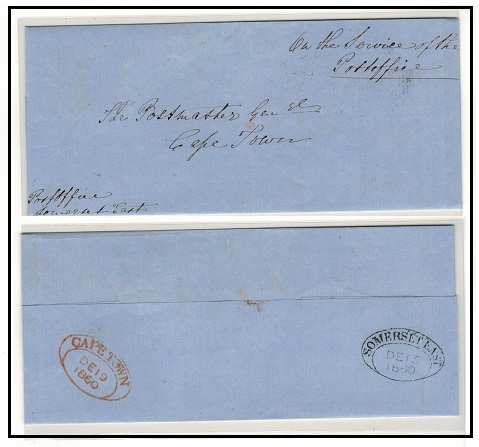 On the Service of the
Postoffice
The Postmaster Genel
Cape Town
Postoffice
Somerset East
CAPE TOWN
DE 19
1860
SOMERSET EAST
DE 15
1860